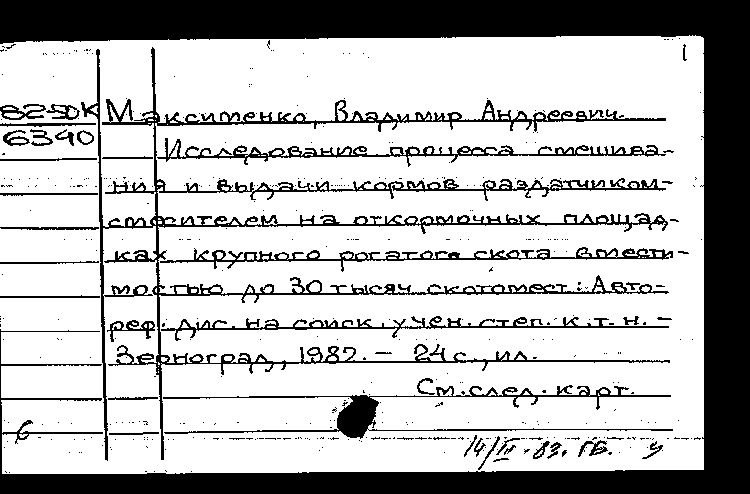 1
82-50К Максименко, Владимир Андреевич.
6340
Исследование процесса смешива-
ния и выдачи кормов раздатчиком-
смесителем на откормочных площад-
ках крупного рогатого скота вмести-
мостью до 30 тысяч скотомест: Авто-
реф. дис. на соиск. учен. степ. к.т.н. -
Зерноград, 1982. - 24 с., ил.
См. след. карт.
6
14/III-83. ГБ.